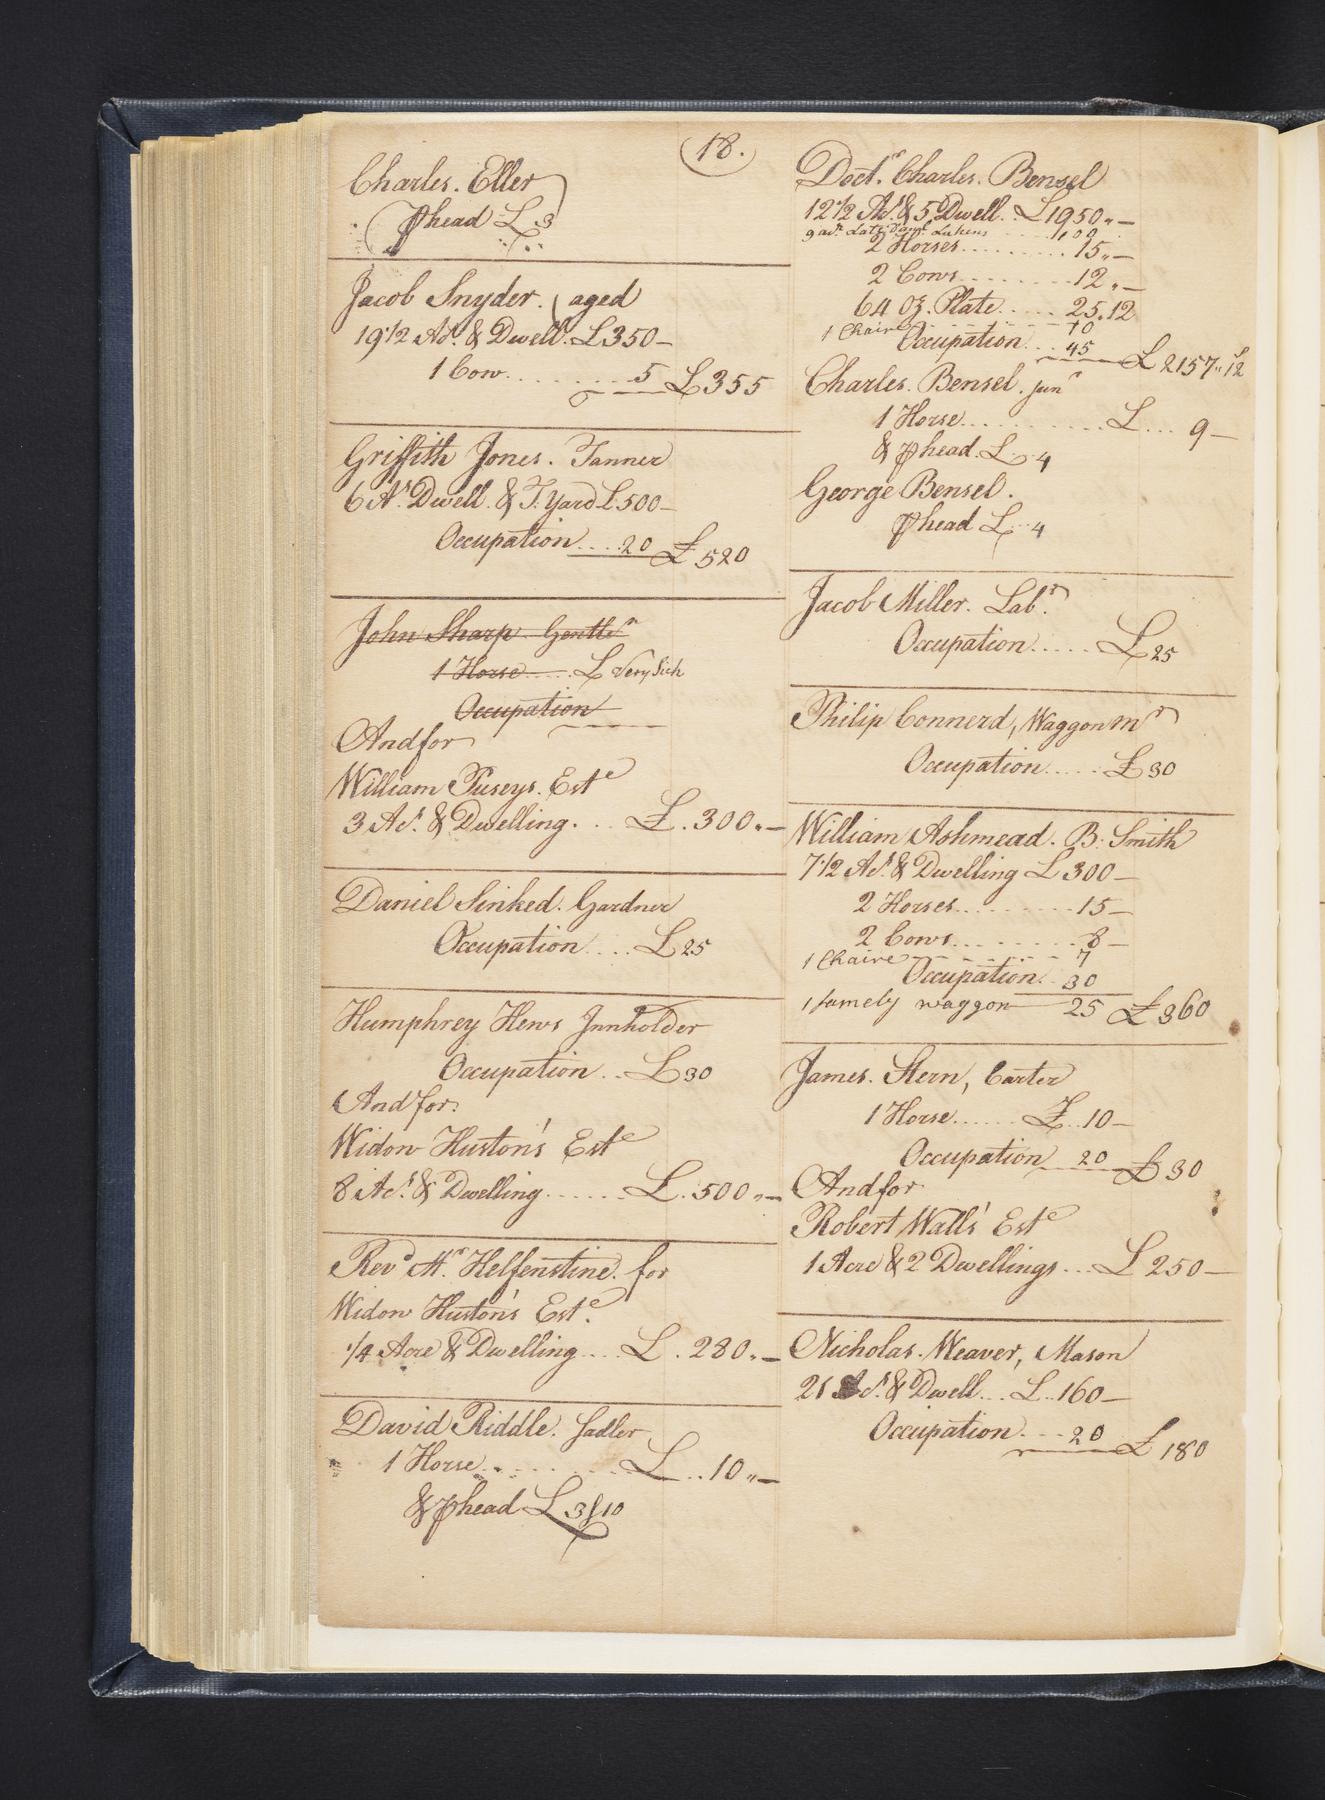 18.
Charles. Eller
⅌ head £ 3
Jacob Snyder. (aged
19 1/2 Ac.s & Dwell. £350 –
1 Cow ........ 5 £355
Griffith Jones. Tanner
6 A.s Dwell. & T. Yard £500 –
Occupation .... 20 £520
John Sharp Gentle.n
1 Horse .... £ Very Sick
Occupation
And for
William Puseys. Est.e
3 Ac.s & Dwelling. ... £. 300 „ –
Daniel Sinked. Gardner
Occupation .... £25
Humphrey Hews Innholder
Occupation .. £30
And for.
Widow Huston's Est.e
8 Ac.s & Dwelling ...... £. 500 „ –
Rev.d M.r Helfenstine. for
Widow Huston's Est.e
1/4 Acre & Dwelling .... £. 280 „ –
David Riddle. Sadler
1 Horse ........ £ .. 10 „ –
& ⅌ head £ 3 10
Doct.r Charles. Bensel
12 1/2 Ac.s & 5 Dwell. £1950 „ –
9 ac.rs Late Saml Lukens ..... 100
2 Horses ......... 15 „ –
2 Cows ......... 12 „ –
64 Oz. Plate ..... 25.12
1 Chaire ------ 10
Occupation ... 45 £2157 „ 12
Charles. Bensel. jun.r
1 Horse .......... £ .... 9 –
& ⅌ head. £ .. 4
George Bensel.
⅌ head £ .. 4
Jacob Miller. Lab.r
Occupation ..... £25
Philip Connerd, Waggon m.r
Occupation ..... £30
William Ashmead. B. Smith
7 1/2 Ac.s & Dwelling £300 –
2 Horses ......... 15 –
2 Cows ......... 8 –
1 Chaire ------ 7
Occupation .. 30
1 famely waggon — 25 £360
James. Stern, Carter
1 Horse ...... £ .. 10 –
Occupation 20 £30
And for
Robert Wall's Est.e
1 Acre & 2 Dwellings ... £250 –
Nicholas. Weaver, Mason
21 Ac.s & Dwell ... £ .. 160 –
Occupation .... 20 £180